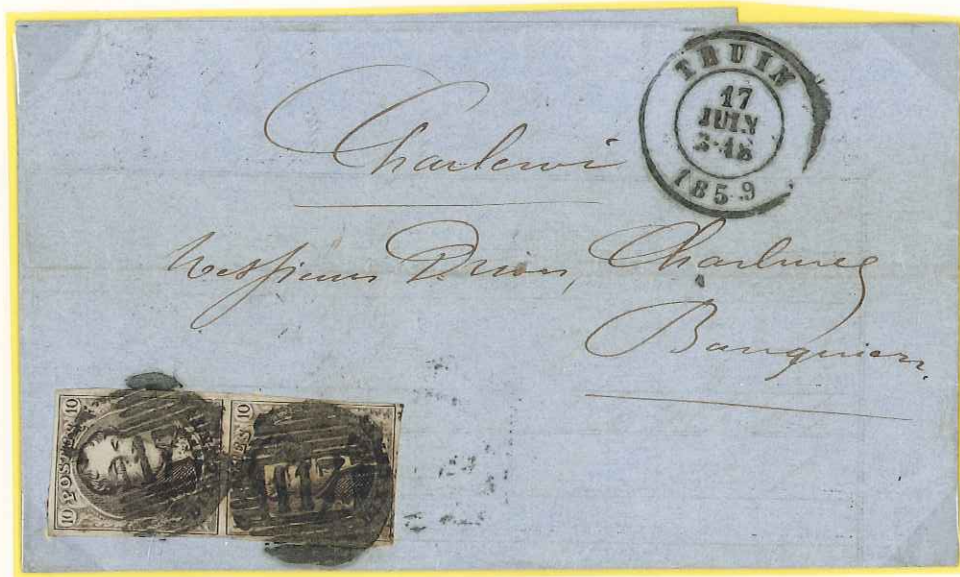 THUIN
17
JUIN
3-4S
1859
Charleroi
Messieurs Drion,
Banquiers.
10 POSTES 10
10
10
117